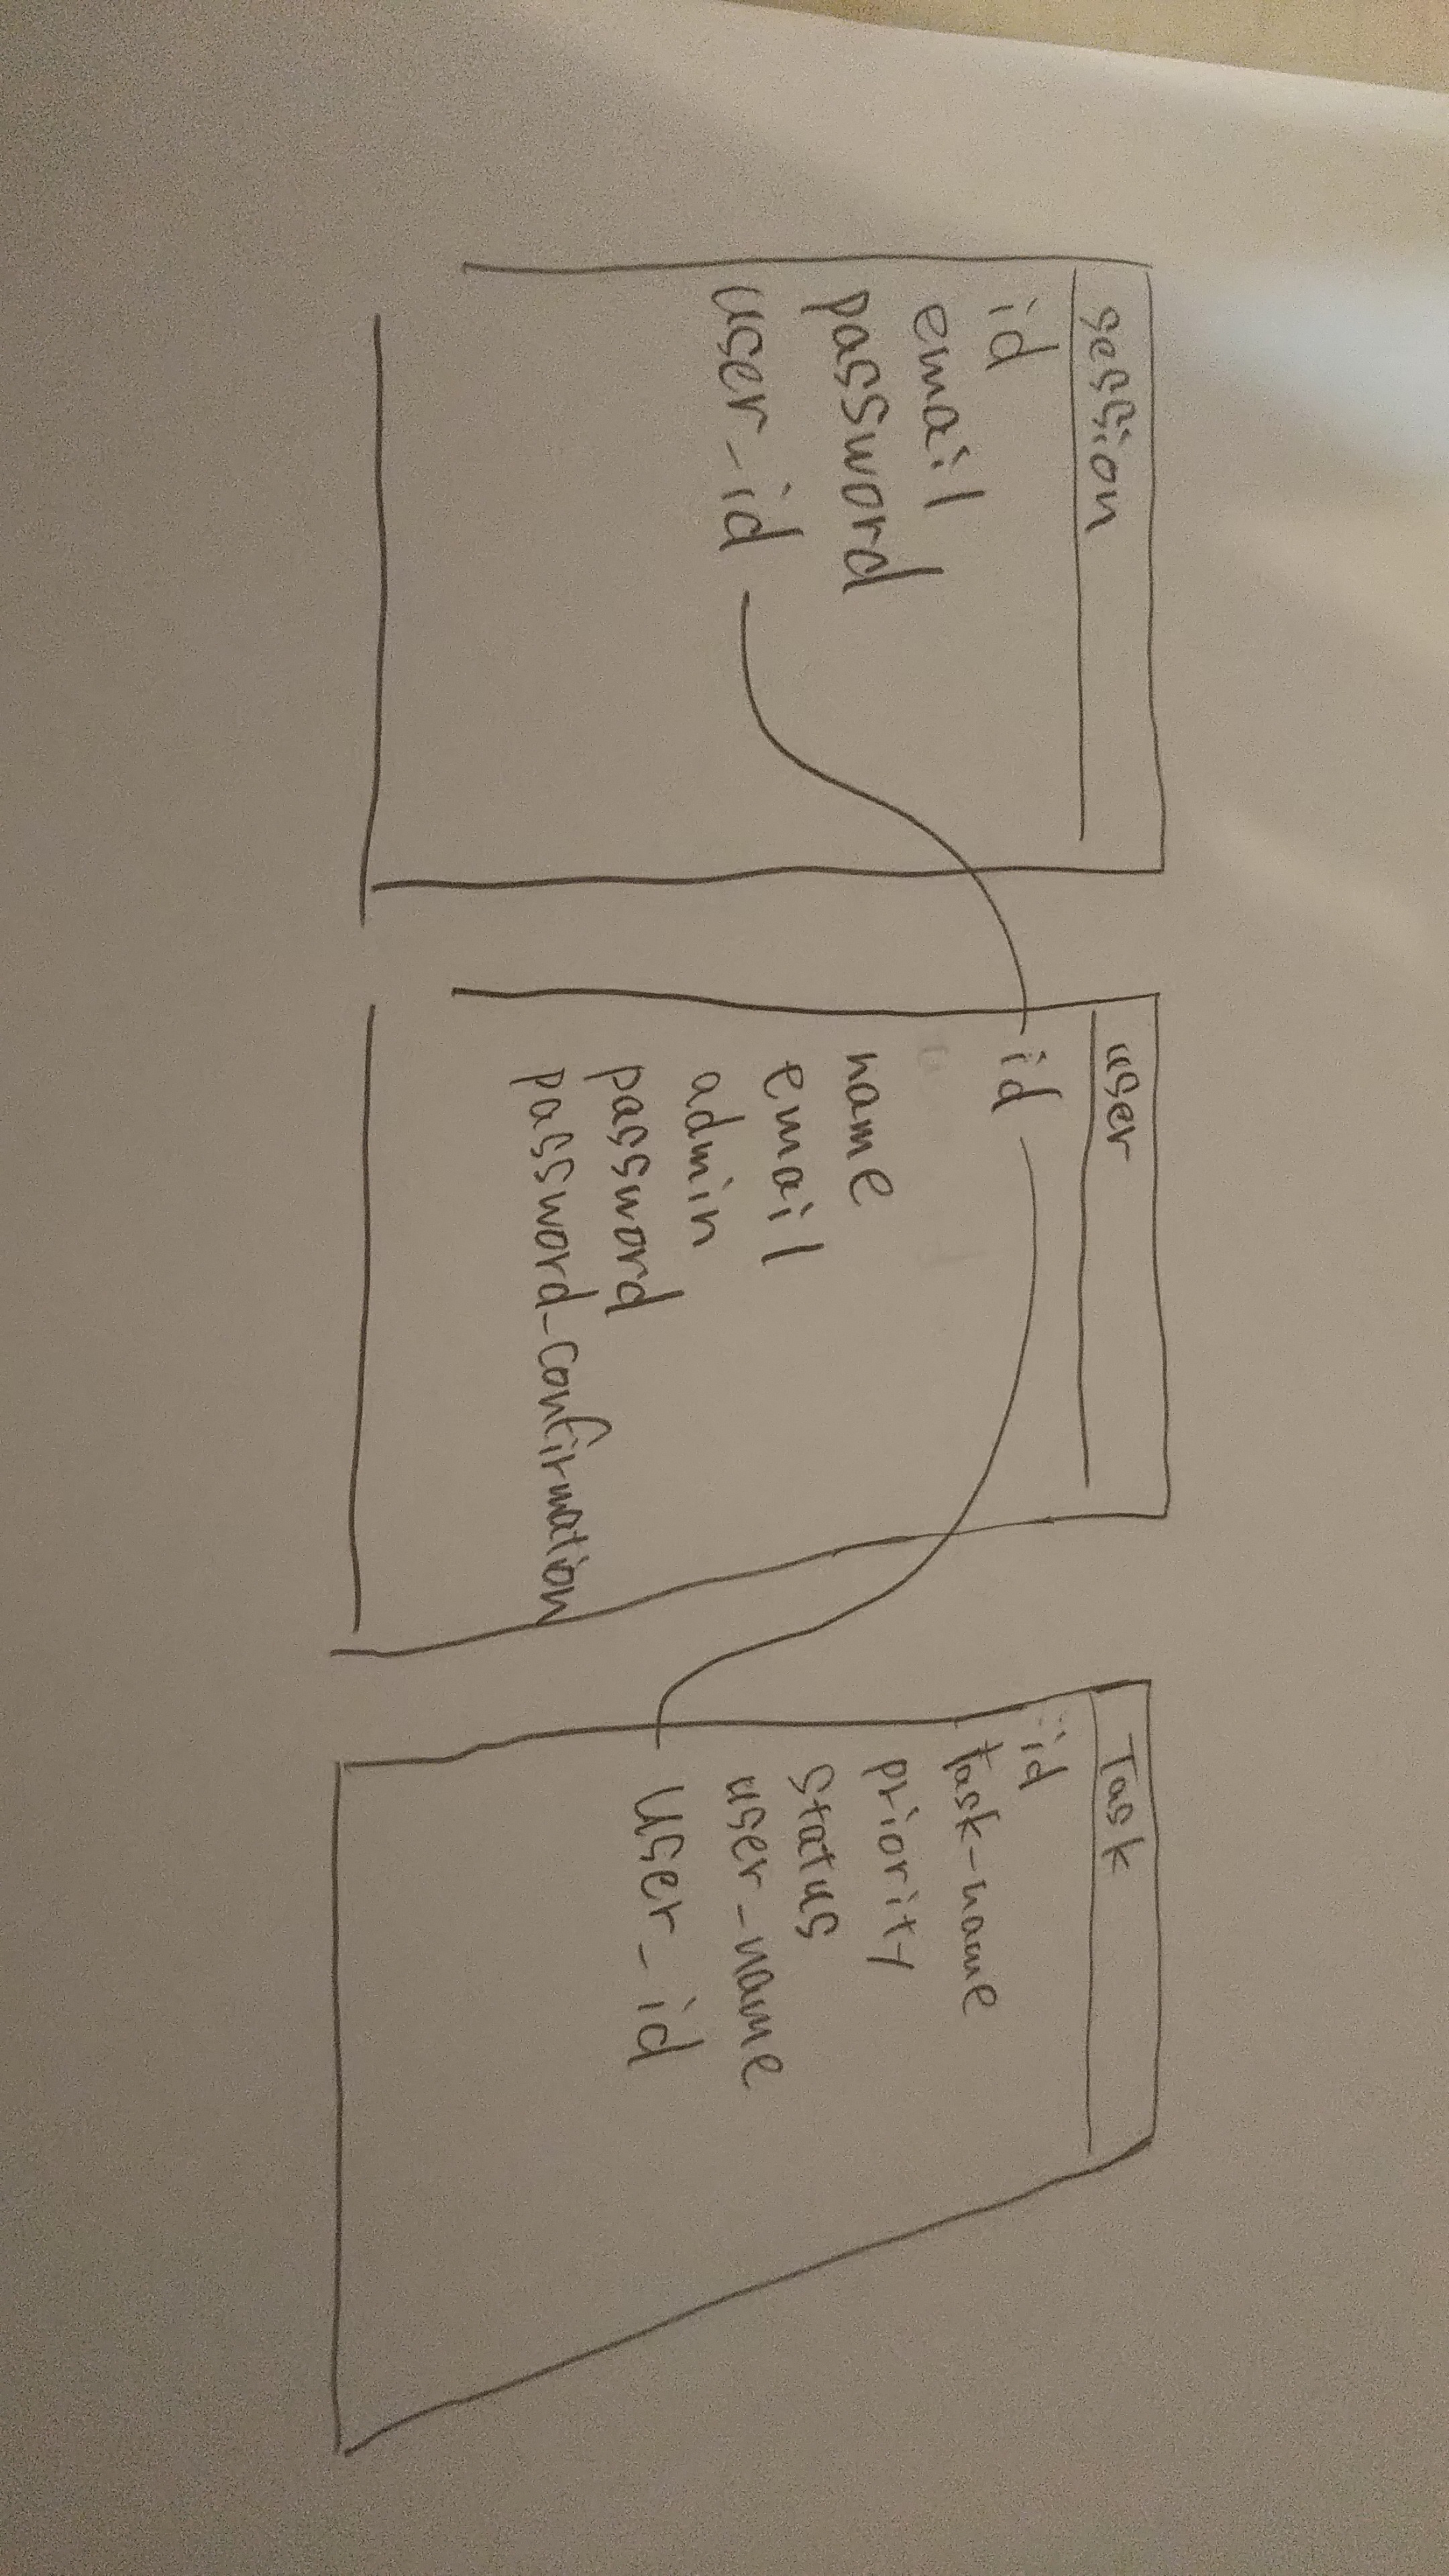 session
id
email
password
user_id
user
id
name
email
admin
password
password_confirmation
Task
id
task_name
priority
status
user_name
user_id